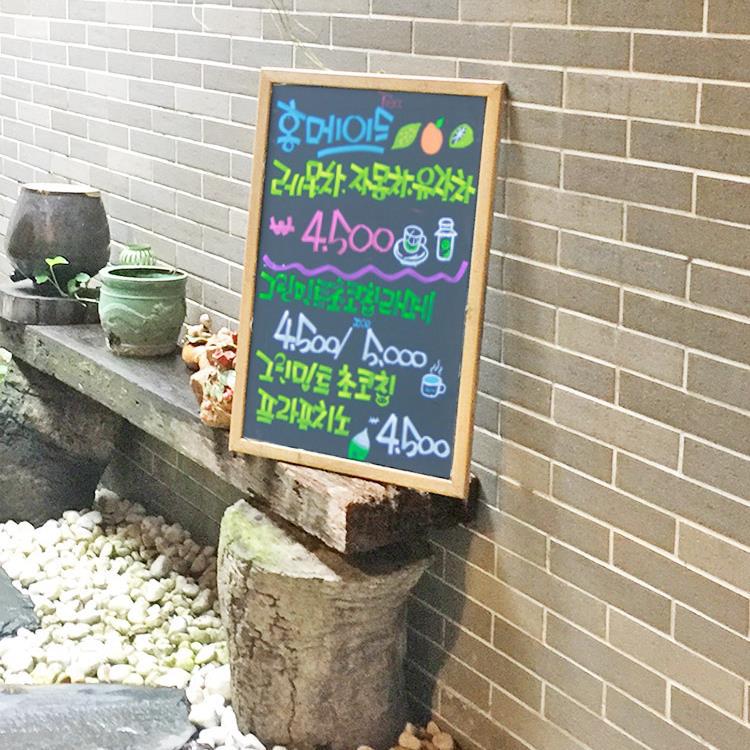 홈메이드
레몬차·자몽차·유자차
₩ 4.500
그린민트초코칩라떼
4.500/ 5,000
그린민트 초코칩
프라푸치노 ₩4.500